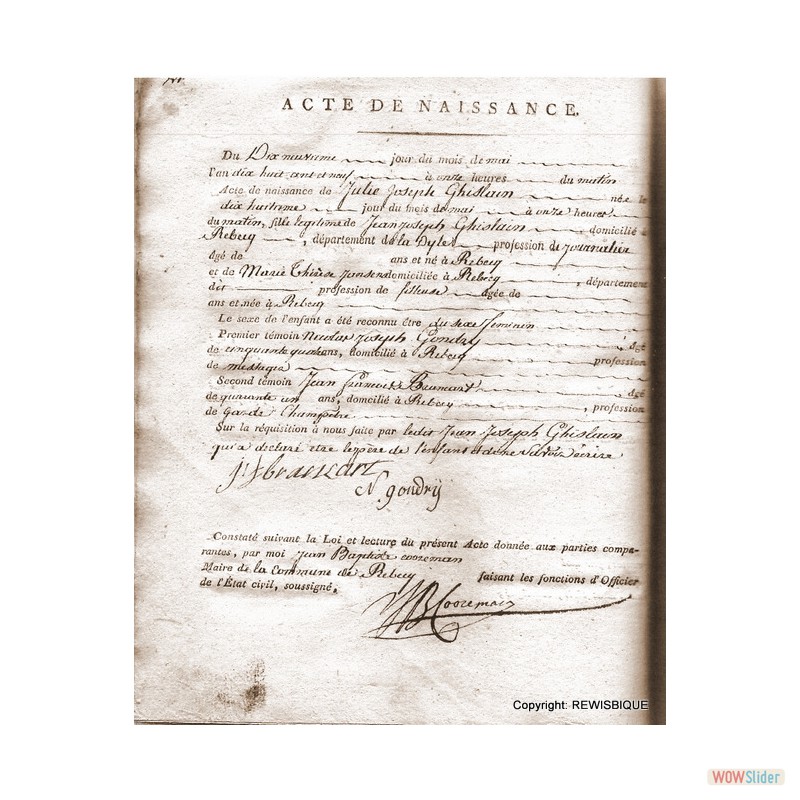 ACTE DE NAISSANCE.
Du Dix neuvieme jour du mois de mai
l'an dix huit cent et neuf à onze heures du matin
Acte de naissance de Julie Joseph Ghislain née le
dix huitieme jour du mois de mai à onze heures
du matin, fille legitime de Jean Joseph Ghislain domicilié à
Rebecq, département de la Dyle profession de journalier
âgé de ans et né à Rebecq
et de Marie Thérèse Jansen domiciliée à Rebecq, département
de profession de fileuse âgée de
ans et née à Rebecq
Le sexe de l'enfant a été reconnu être du sexe feminin
Premier témoin Nicolas Joseph Gondry, âgé
de cinquante quatre ans, domicilié à Rebecq profession
de
Second témoin Jean François, âgé
de quarante un ans, domicilié à Rebecq, profession
de Garde Champêtre
Sur la réquisition à nous faite par ledit Jean Joseph Ghislain
qui a declaré etre le père de l'enfant et de ne savoir écrire
N gondrÿ
Constaté suivant la Loi et lecture du présent Acte donnée aux parties compa-
rantes, par moi Jean Baptiste cooreman
Maire de la Commune de Rebecq faisant les fonctions d'Officier
de l'État civil, soussigné.
JB Cooreman
Copyright: REWISBIQUE
WOWSlider